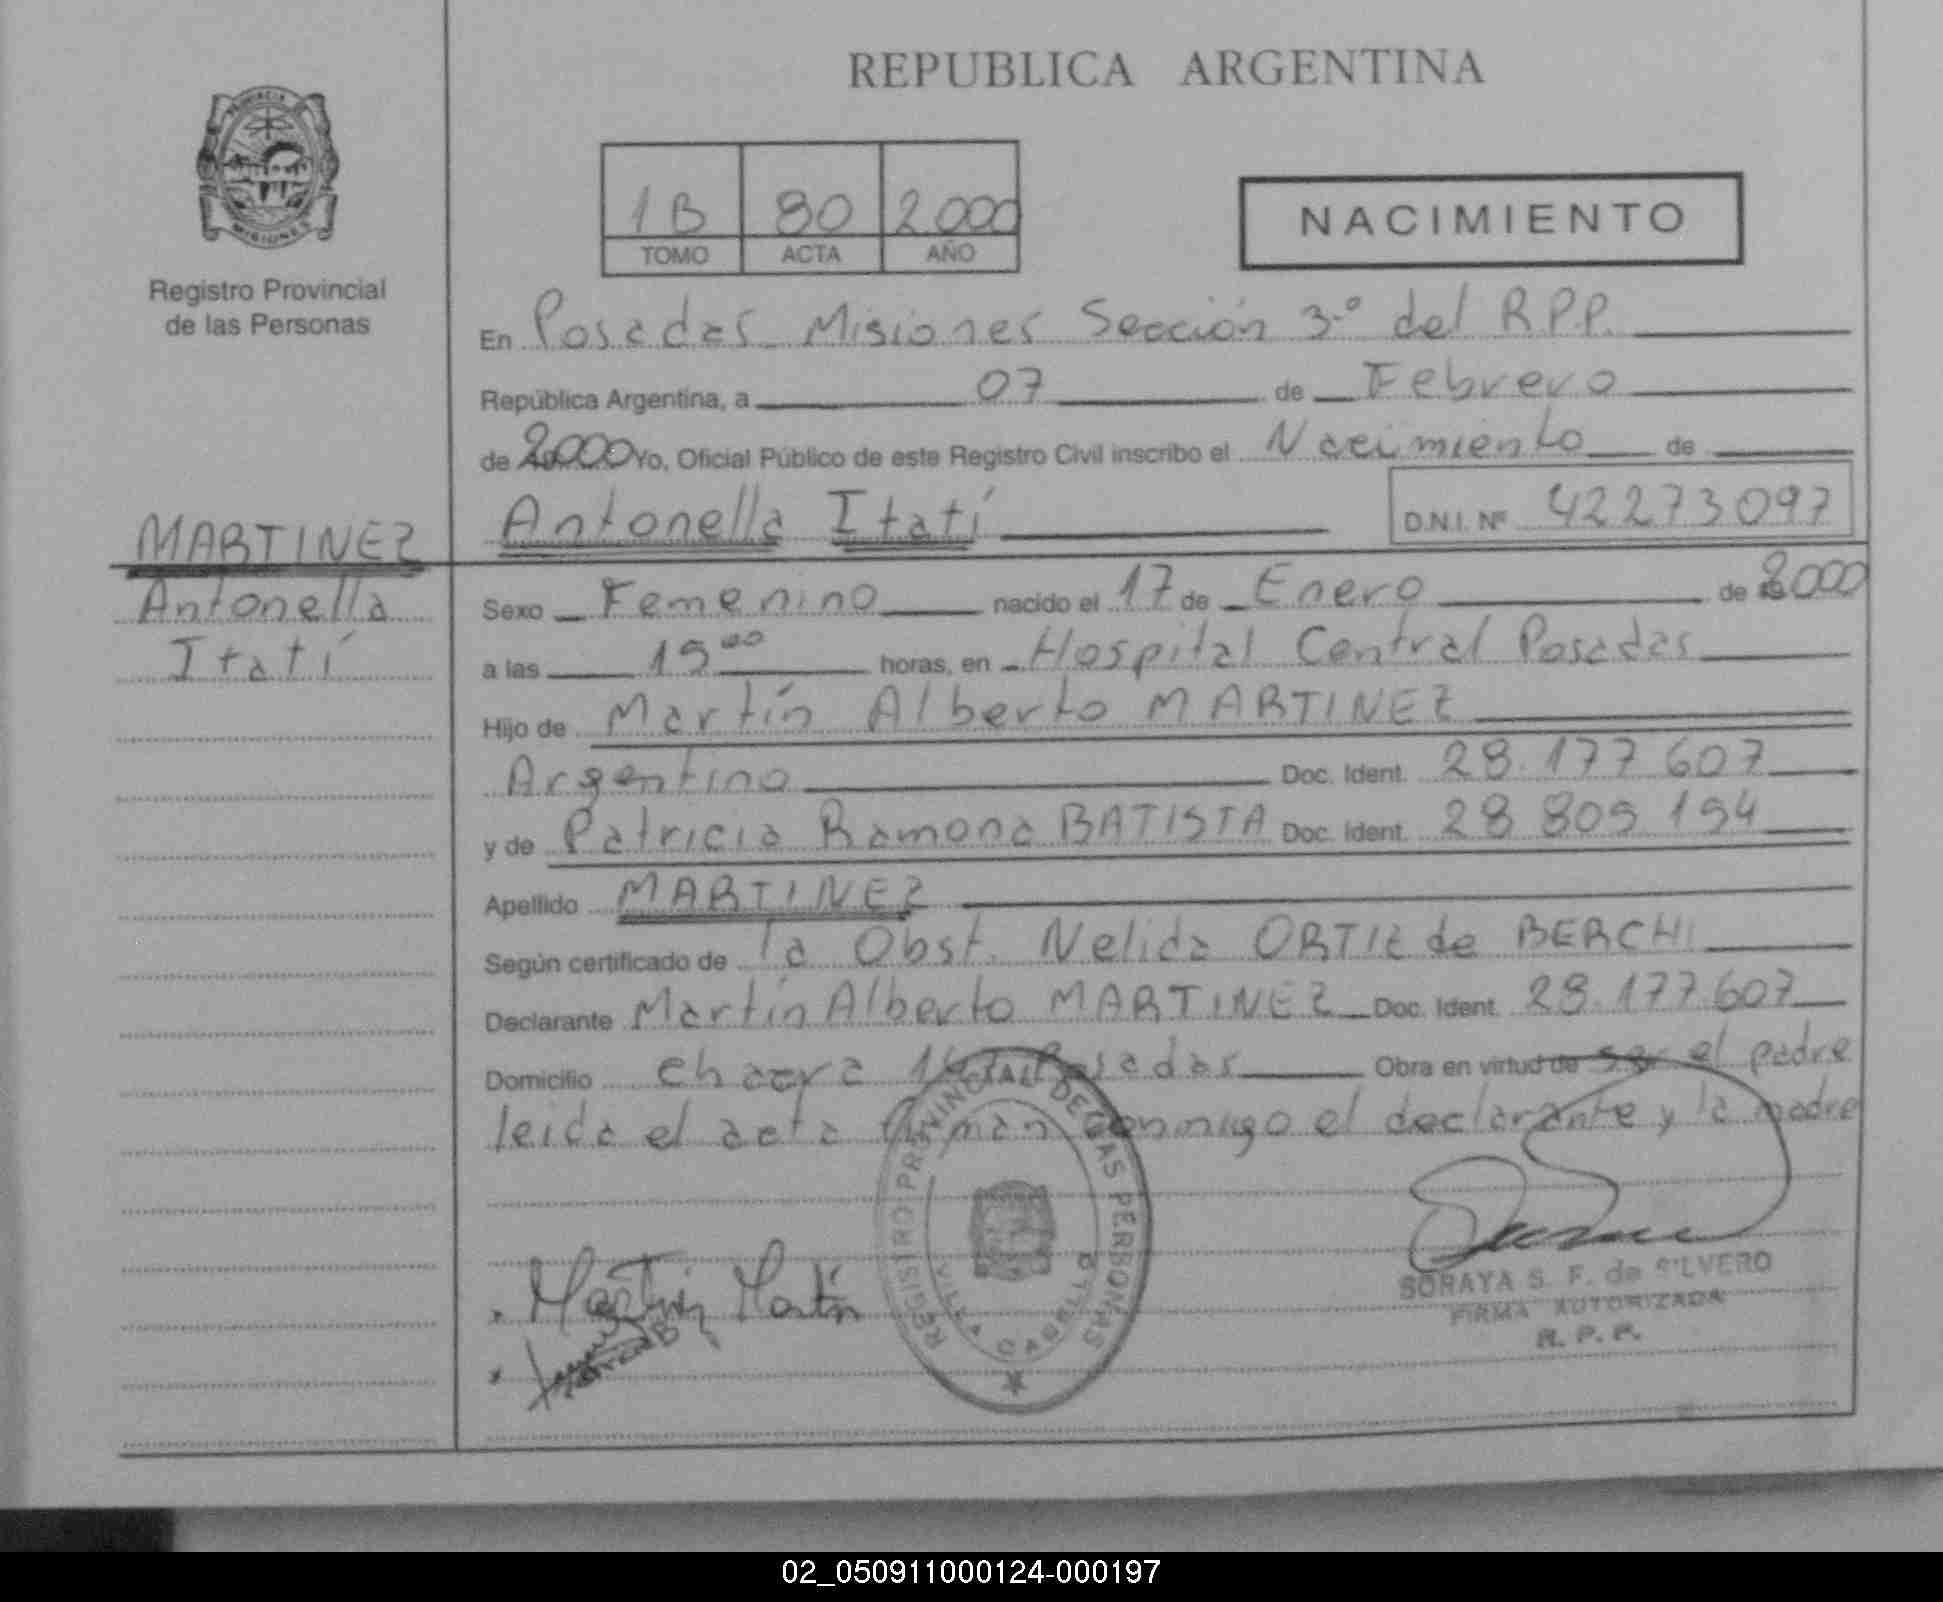 REPUBLICA ARGENTINA
PROVINCIA
MISIONES
Registro Provincial
de las Personas
1B 80 2000
TOMO ACTA AÑO
NACIMIENTO
En Posadas Misiones Sección 3.º del R.P.P.
República Argentina, a 07 de Febrero
de 2000 Yo, Oficial Público de este Registro Civil inscribo el Nacimiento de
Antonella Itatí D.N.I. Nº 42273097
MARTINEZ
Antonella
Itatí
Sexo Femenino nacido el 17 de Enero de 2000
a las 19 00 horas, en Hospital Central Posadas
Hijo de Martín Alberto MARTINEZ
Argentino Doc. Ident. 28.177 607
y de Patricia Ramona BATISTA Doc. Ident. 28 809 194
Apellido MARTINEZ
Según certificado de la Obst. Nelida ORTIZ de BERCHI
Declarante Martín Alberto MARTINEZ Doc. Ident. 28.177.607
Domicilio chacra Posadas Obra en virtud de ser el padre
leida el acta firman conmigo el declarante y la madre
REGISTRO PROVINCIAL DE LAS PERSONAS
VILLA CABELLO
Martin Martín
SORAYA S. F. de SILVERO
FIRMA AUTORIZADA
R. P. P.
02_050911000124-000197